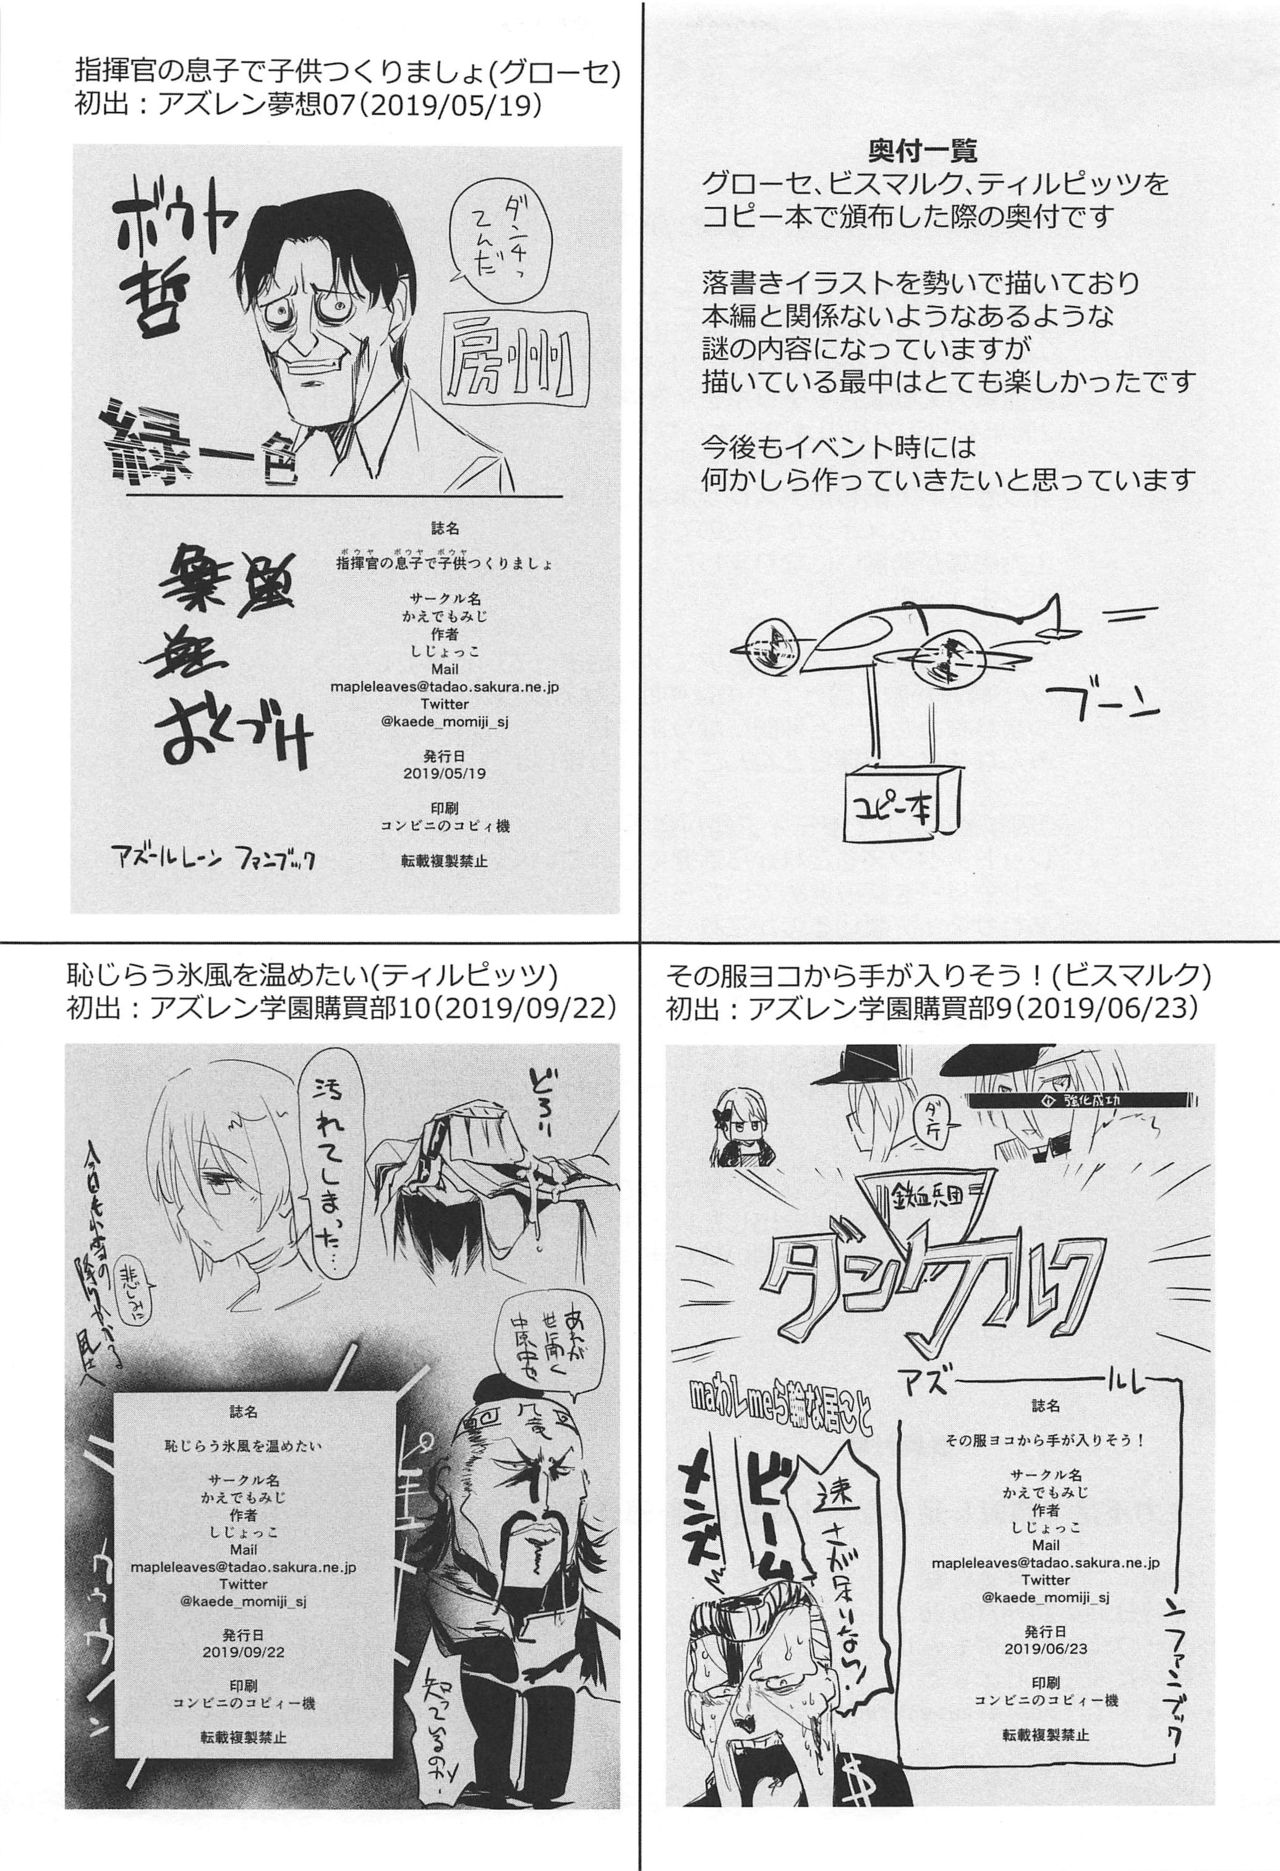 指揮官の息子で子供つくりましょ(グローセ)
初出：アズレン夢想07(2019/05/19)
ボウヤ
哲
ダンチってんだ
房州
緑一色
おくづけ
誌名
ボウヤ ボウヤ ボウヤ
指揮官の息子で子供つくりましょ
サークル名
かえでもみじ
作者
しじょっこ
Mail
mapleleaves@tadao.sakura.ne.jp
Twitter
@kaede_momiji_sj
発行日
2019/05/19
印刷
コンビニのコピィ機
転載複製禁止
アズールレーン ファンブック
奥付一覧
グローセ、ビスマルク、ティルピッツを
コピー本で頒布した際の奥付です
落書きイラストを勢いで描いており
本編と関係ないようなあるような
謎の内容になっていますが
描いている最中はとても楽しかったです
今後もイベント時には
何かしら作っていきたいと思っています
ブーン
コピー本
恥じらう氷風を温めたい(ティルピッツ)
初出：アズレン学園購買部10(2019/09/22)
どろり
汚れてしまった…
悲しみに
あれが
世に聞く
中原中也
知っているのか
誌名
恥じらう氷風を温めたい
サークル名
かえでもみじ
作者
しじょっこ
Mail
mapleleaves@tadao.sakura.ne.jp
Twitter
@kaede_momiji_sj
発行日
2019/09/22
印刷
コンビニのコピィー機
転載複製禁止
その服ヨコから手が入りそう！(ビスマルク)
初出：アズレン学園購買部9(2019/06/23)
強化成功
鉄血兵団
ダンケルク
アズールレーンファンブック
maわしmeら輪な居こと
メンズ
ビーム
速さが足りない！
誌名
その服ヨコから手が入りそう！
サークル名
かえでもみじ
作者
しじょっこ
Mail
mapleleaves@tadao.sakura.ne.jp
Twitter
@kaede_momiji_sj
発行日
2019/06/23
印刷
コンビニのコピィー機
転載複製禁止
$